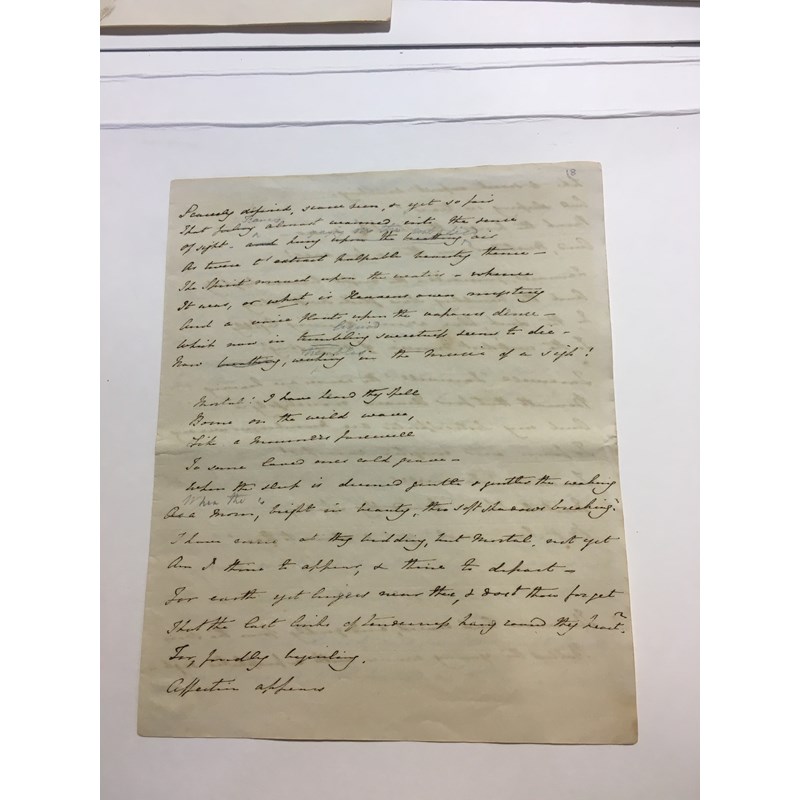 18
Scarcely defined, scarce seen, & yet so fair
That feeling almost warmed into the sense
Of sight - and hung upon the breathing air
As twere to extract palpable beauty thence -
The Spirit moved upon the waters - whence
It was, or what, is Heavens own mystery
And a voice floats upon the vaporous dense -
Which now in trembling sweetness seems to die -
Now breathing, waking in the music of a sigh!
Mortal! I have heard thy spell
Borne on the wild wave,
Like a Mourners farewell
To some loved ones cold grave -
When the sleep is deemed gentle & gentler the waking
When the
As a Morn, bright in beauty, thro soft shadows breaking!
I have come at thy bidding, but Mortal, not yet
Am I thine to appear, & thine to depart -
For earth yet lingers near thee, & dost thou forget
That the last links of tenderness hang round thy heart?
For, fondly beguiling,
Affection appears